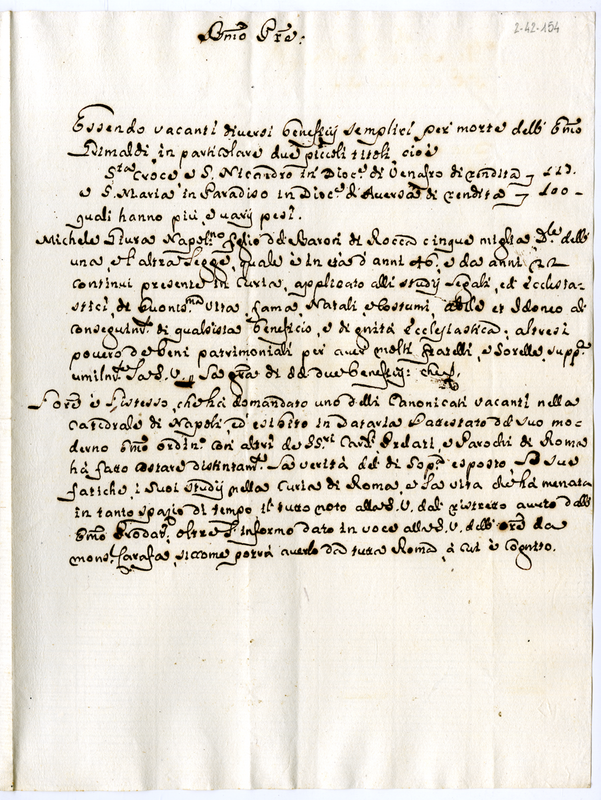 2-42-154
B.mo P.re:
Essendo vacanti diversi beneficij semplici per morte dell' E.mo
Grimaldi, in particolare due piccoli titoli, cioè
S.ta Croce e S. Nicandro in Dioc.i di Venafro di rendita
e S. Maria in Paradiso in Dioc.i d'Aversa di rendita 100 -
quali hanno più, e varij pesi.
Michele Napol.no figlio del Baroni di Rocca cinque miglia D.le dell'
una, e l'altra legge, quale è in età d'anni 46, e da anni 22
continui presente in Curia, applicato alli studij legali, ed Ecclesia-
stici, di buonis.ma vita fama, Natali, e Costumi, abile et Idoneo ad
conseguire di qualsisia beneficio, e dignità Ecclesiastica; altresi
povero de beni patrimoniali per aver molti fratelli, e Sorelle supp.a
umilm.te la S. V. la gra di dd due benefecij: che
L'ore è l'istesso, che hà domandato uno delli Canonicati vacanti nella
Catedrale di Napoli, ed esibito in Dataria l'attestato del suo mo-
derno E.mo ordin.o con altri de SS.ri Card.i Prelati, e Parochi di Roma
hà fatto costare distintam.te la verità del di sop.a esposto, le sue
fatiche, i suoi studij nella Curia di Roma, e la vita che hà menata
in tanto spazio di tempo il tutto noto alla S. V. dal ristretto avuto dall'
E.mo Prodat.o, oltre l'informo dato in voce alla S. V. dell' ore da
mons.r Carafa, siccome potrà averlo da tutta Roma, à cui è cognito.